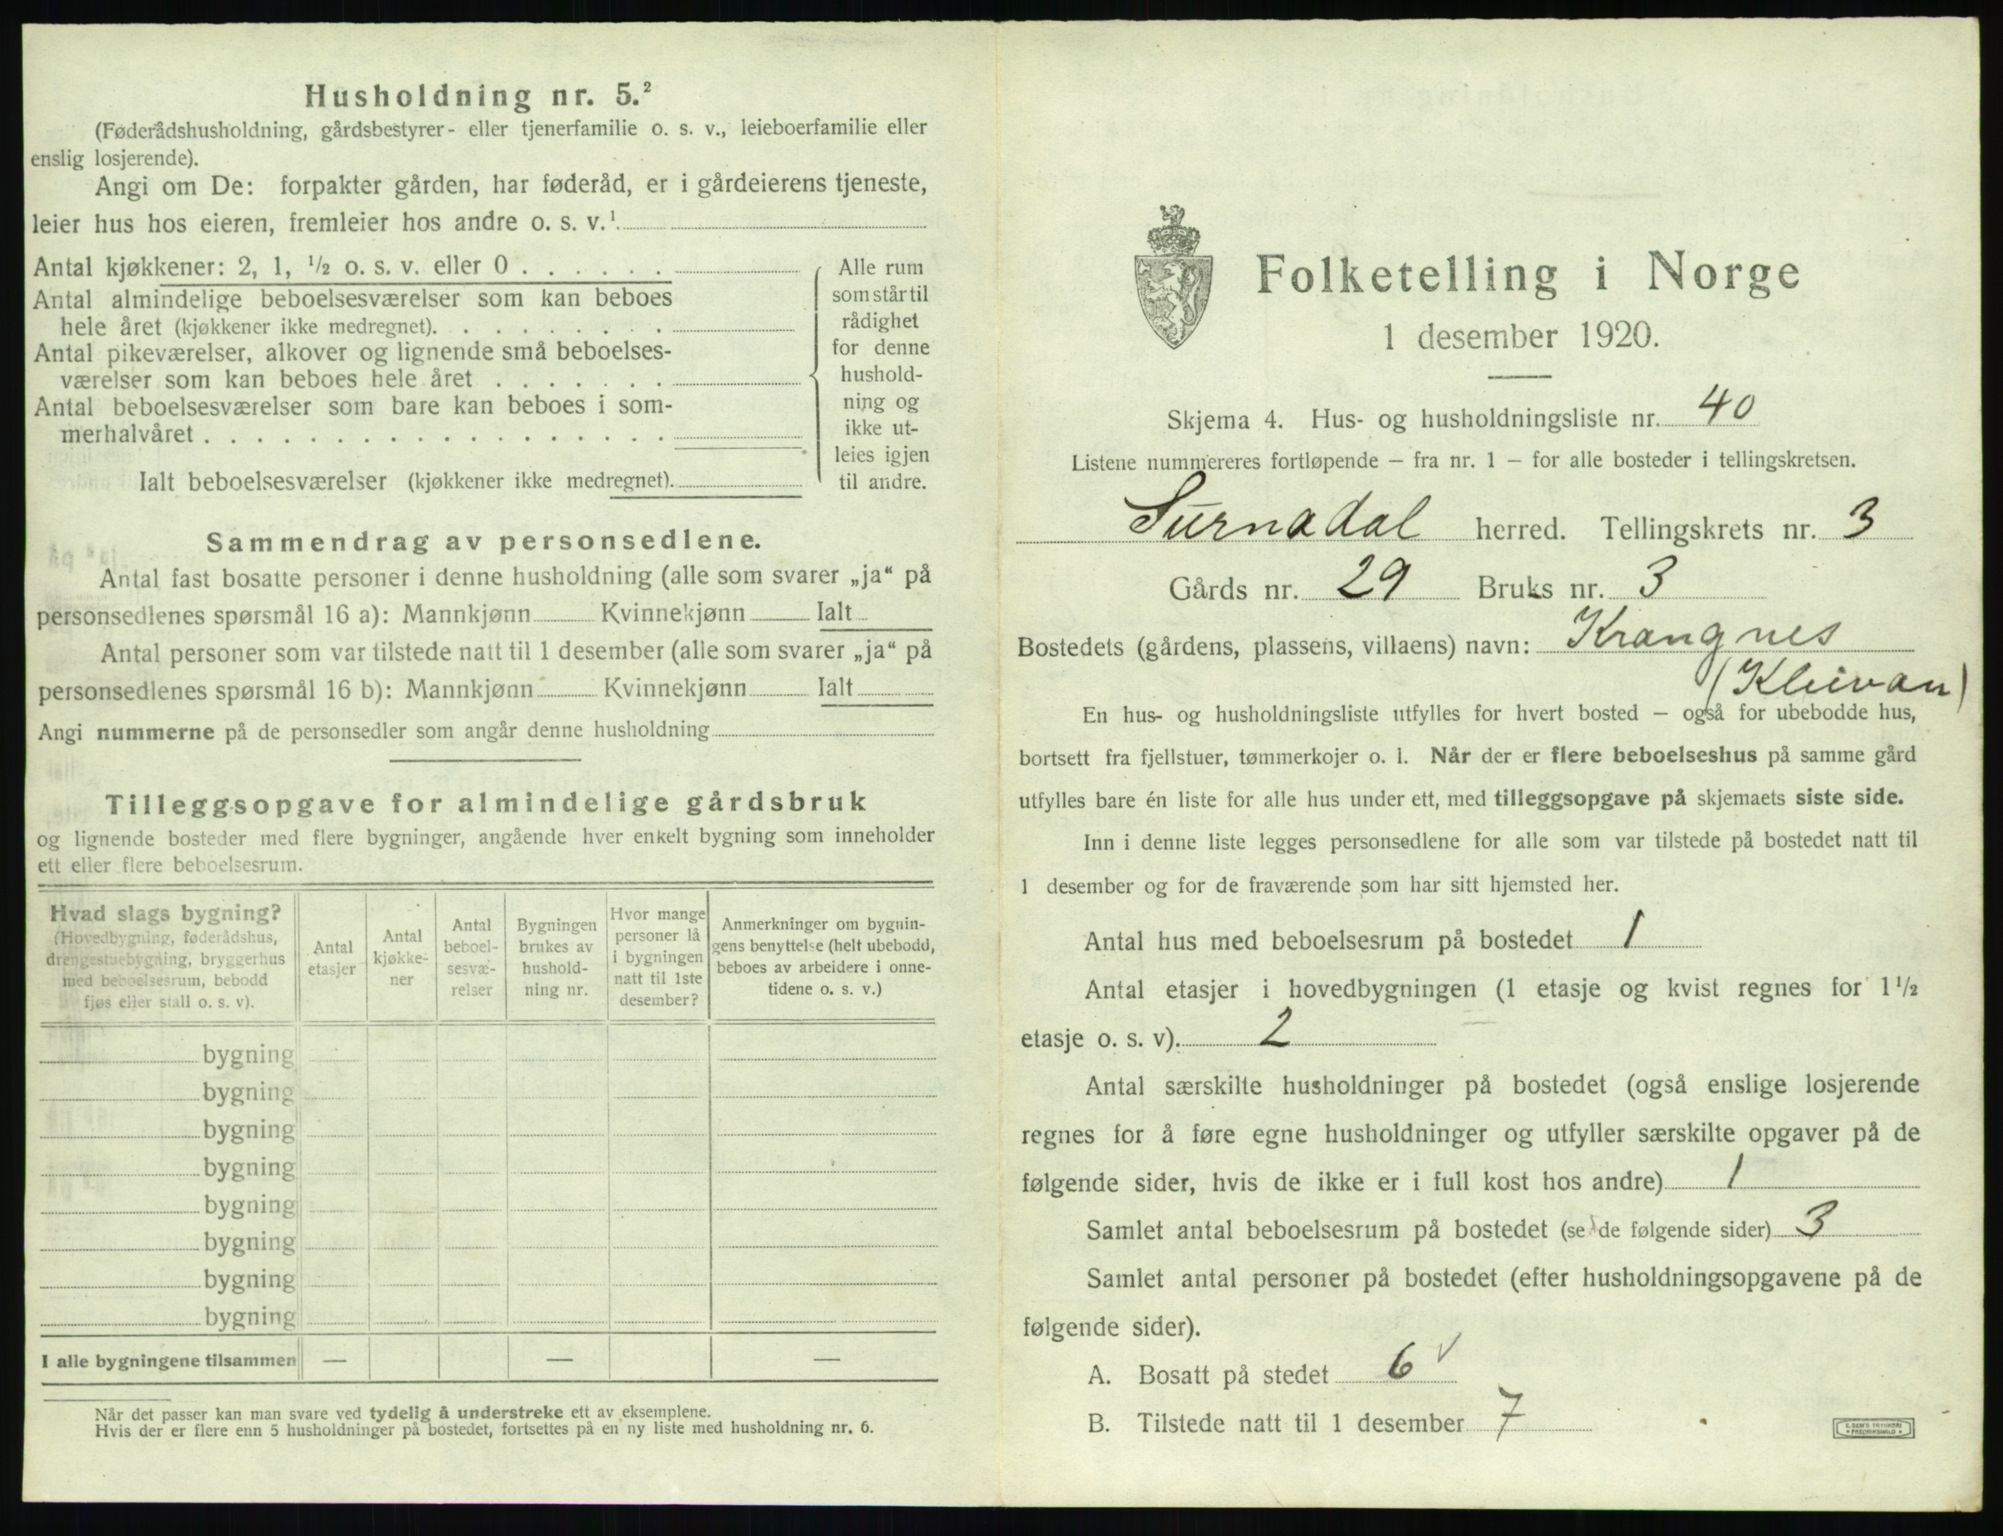 Husholdning nr. 5.²
(Føderådshusholdning, gårdsbestyrer- eller tjenerfamilie o. s. v., leieboerfamilie eller
enslig losjerende).
Angi om De: forpakter gården, har føderåd, er i gårdeierens tjeneste,
leier hus hos eieren, fremleier hos andre o. s. v.¹
Antal kjøkkener: 2, 1, ½ o. s. v. eller 0 . . . . . .
Antal almindelige beboelsesværelser som kan beboes
hele året (kjøkkener ikke medregnet). . . . . . . . .
Antal pikeværelser, alkover og lignende små beboelses-
værelser som kan beboes hele året . . . . . . .
Antal beboelsesværelser som bare kan beboes i som-
merhalvåret . . . . . . . . . . . . . . . . . .
Ialt beboelsesværelser (kjøkkener ikke medregnet).
Alle rum
som står til
rådighet
for denne
hushold-
ning og
ikke ut-
leies igjen
til andre.
Sammendrag av personsedlene.
Antal fast bosatte personer i denne husholdning (alle som svarer „ja“ på
personsedlenes spørsmål 16 a): Mannkjønn Kvinnekjønn Ialt
Antal personer som var tilstede natt til 1 desember (alle som svarer „ja“ på
personsedlenes spørsmål 16 b): Mannkjønn Kvinnekjønn Ialt
Angi nummerne på de personsedler som angår denne husholdning
Tilleggsopgave for almindelige gårdsbruk
og lignende bosteder med flere bygninger, angående hver enkelt bygning som inneholder
ett eller flere beboelsesrum.
Hvad slags bygning?
(Hovedbygning, føderådshus,
drengestuebygning, bryggerhus
med beboelsesrum, bebodd
fjøs eller stall o. s. v).
Antal
etasjer
Antal
kjøkke-
ner
Antal
beboel-
sesvæ-
relser
Bygningen
brukes av
hushold-
ning nr.
Hvor mange
personer lå
i bygningen
natt til 1ste
desember?
Anmerkninger om bygnin-
gens benyttelse (helt ubebodd,
beboes av arbeidere i onne-
tidene o. s. v.)
bygning
bygning
bygning
bygning
bygning
bygning
bygning
bygning
I alle bygningene tilsammen — — —
Når det passer kan man svare ved tydelig å understreke ett av eksemplene.
Hvis der er flere enn 5 husholdninger på bostedet, fortsettes på en ny liste med husholdning nr. 6.
Folketelling i Norge
1 desember 1920.
Skjema 4. Hus- og husholdningsliste nr. 40
Listene nummereres fortløpende — fra nr. 1 — for alle bosteder i tellingskretsen.
Surnadal herred. Tellingskrets nr. 3
Gårds nr. 29 Bruks nr. 3
Bostedets (gårdens, plassens, villaens) navn: Krangnes
(Kleivan)
En hus- og husholdningsliste utfylles for hvert bosted — også for ubebodde hus,
bortsett fra fjellstuer, tømmerkojer o. l. Når der er flere beboelseshus på samme gård
utfylles bare én liste for alle hus under ett, med tilleggsopgave på skjemaets siste side.
Inn i denne liste legges personsedlene for alle som var tilstede på bostedet natt til
1 desember og for de fraværende som har sitt hjemsted her.
Antal hus med beboelsesrum på bostedet 1
Antal etasjer i hovedbygningen (1 etasje og kvist regnes for 1½
etasje o. s. v). 2
Antal særskilte husholdninger på bostedet (også enslige losjerende
regnes for å føre egne husholdninger og utfyller særskilte opgaver på de
følgende sider, hvis de ikke er i full kost hos andre) 1
Samlet antal beboelsesrum på bostedet (se de følgende sider) 3
Samlet antal personer på bostedet (efter husholdningsopgavene på de
følgende sider).
A. Bosatt på stedet 6 ✓
B. Tilstede natt til 1 desember 7